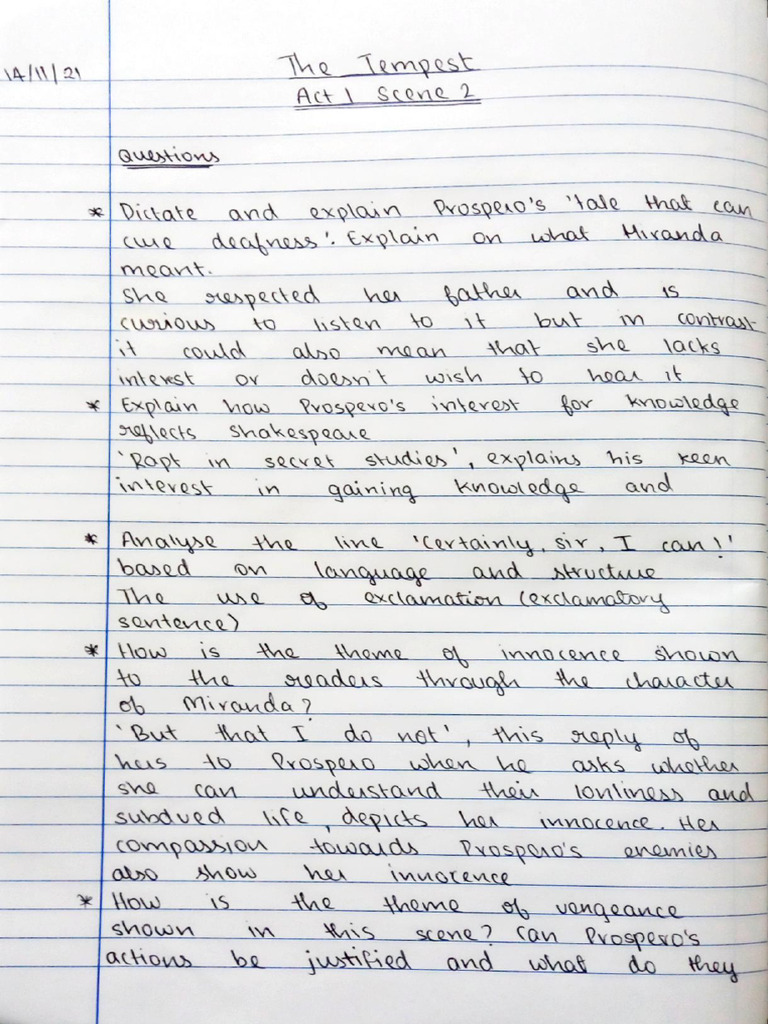 14/11/21
The Tempest
Act 1 Scene 2
Questions
* Dictate and explain Prospero's 'tale that can
cure deafness'. Explain on what Miranda
meant.
She respected her father and is
curious to listen to it but in contrast
it could also mean that she lacks
interest or doesn't wish to hear it
* Explain how Prospero's interest for knowledge
reflects Shakespeare
'Rapt in secret studies', explains his keen
interest in gaining knowledge and
* Analyse the line 'Certainly, sir, I can!'
based on language and structure
The use of exclamation (exclamatory
sentence)
* How is the theme of innocence shown
to the readers through the character
of Miranda?
'But that I do not', this reply of
hers to Prospero when he asks whether
she can understand their lonliness and
subdued life, depicts her innocence. Her
compassion towards Prospero's enemies
also show her innocence
* How is the theme of vengeance
shown in this scene? Can Prospero's
actions be justified and what do they